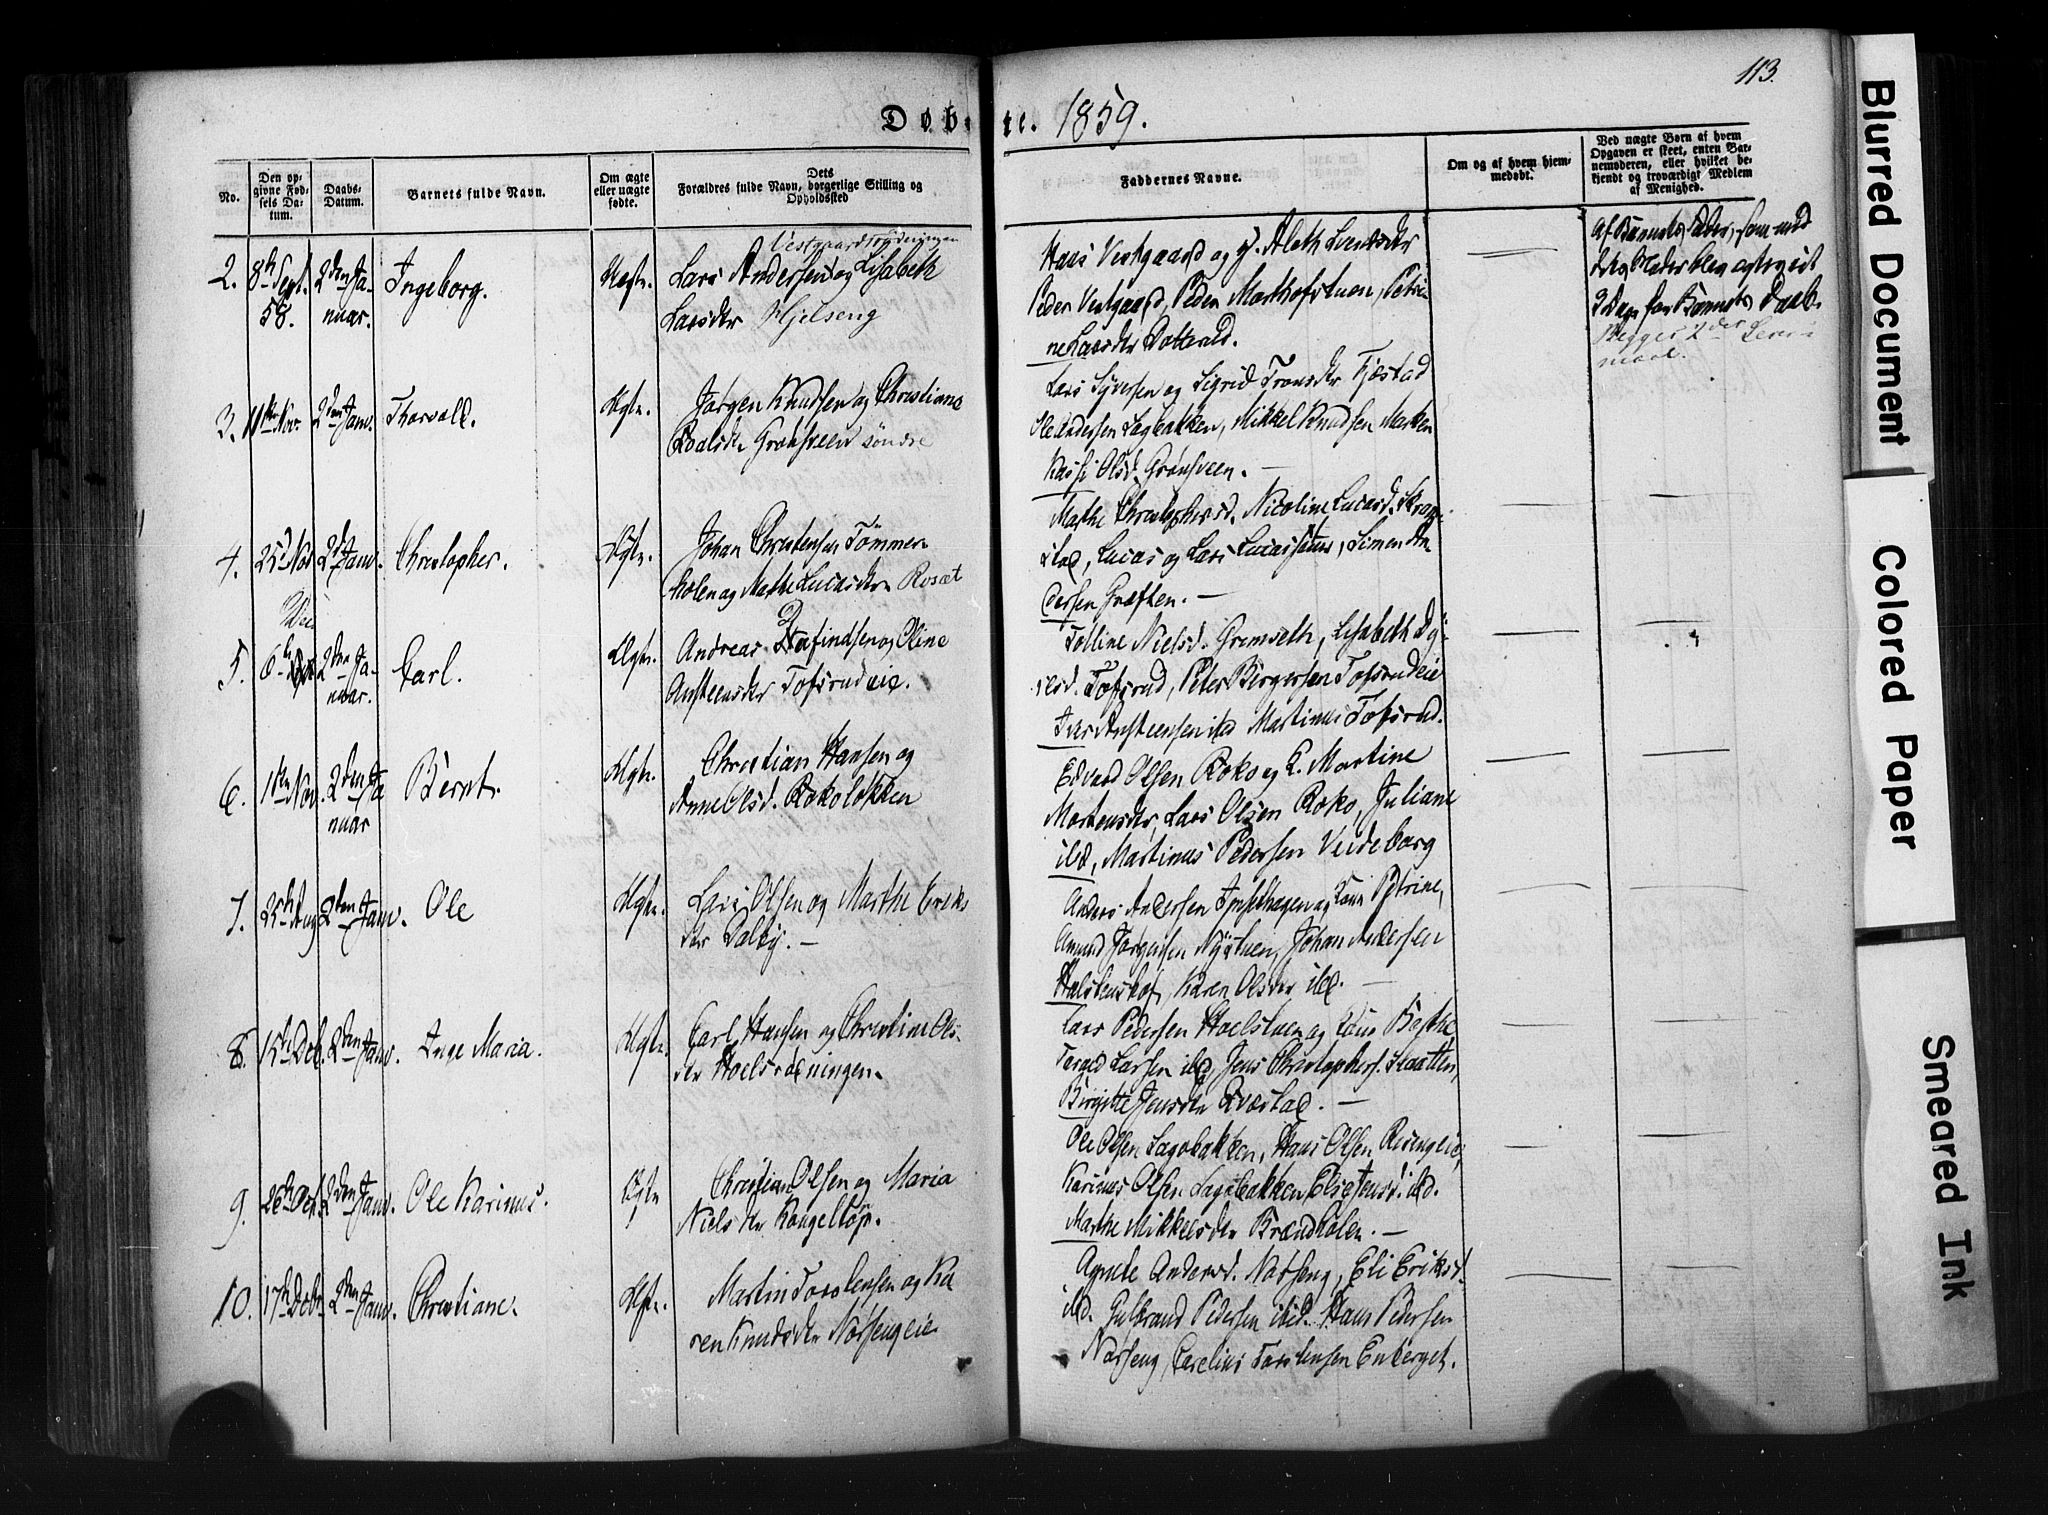 113.
Døb- te. 1859.
No.
Den op-
givne Fød-
sels Da-
tum.
Daabs-
Datum.
Barnets fulde Navn.
Om ægte
eller uægte
fødte.
Dets
Forældres fulde Navn, borgerlige Stilling og
Opholdssted
Faddernes Navne.
Om og af hvem hjem-
medøbt.
Ved uægte Børn af hvem
Opgaven er skeet, enten Bar-
nemoderen, eller hvilket be-
kjendt og troværdigt Medlem
af Menighed.
2. 8de Sept. 58. 2den Ja-
nuar.
Ingeborg.
Uægte.
Vestgaardsrødningen
Lars Andersen og Lisabeth
Larsdtr Hjelseng
Hans Vestgaard og
Peder Vestgaard, Peder Marthofstuen, Petri-
ne Larsdtr
Af Barnets Fader, som med
dets Moder blev
3 Dage før Barnets Daab.
Begges 2det Leier-
maal.
3. 11te Nov. 2den Janu. Thorvall.
Ægte.
Jørgen Knudsen og Christiane
Grønsveen søndre
Lars Syversen og Sigrid Fjestad
Ole Andersen Lagbakken, Mikkel Knudsen
Olsd. Grønsveen.
4. 25d Nov 2d Janu. Christopher.
Ægte.
Johan Christensen Tømmer-
holen og Mathe Lucasdtr Rosæt
Marthe Christophersd. Nicoline Lucasd.
stad, Lucas og Lars Simen An-
dersen Græften.
5. 6te Dec 2den Ja-
nuar.
Carl.
Ægte.
Andreas og Oline
Ansteensdtr Tofsrudeie.
Nielsd. Grimseth, Lisabeth Sy-
versd. Tofsrud, Peter Birgersen Tofsrudeie
Iver Anstensen ibd Martinus Tofsrud.
6. 1ste Nov. 2den Ja-
nuar
Bernt.
Ægte.
Christian Hansen og
Anne Olsd. Rokoløkken
Edvard Olsen Roko og K. Martine
Mortensdtr, Lars Olsen Roko, Juliane
ibd, Martinus Pedersen Veideborg
7. 25de Aug 2den Janu. Ole
Ægte.
Lars Olsen og Marthe Eriks-
dtr Dalby.
Anders Andersen og Kone Petrine,
Amund Jørgensen Nystuen, Johan Andersen
Halstenshof, Karen Olsdtr ibd.
8. 15de Deb. 2den Janu. Inge Maria.
Ægte.
Carl Hansen og Christine Ols-
dtr Hoelsrødningen.
Lars Pedersen Hoelstuen og Kone Berthe
Larsen ibd, Jens Christophers. Slaatten,
Birgitte Jensdtr Kvæstad.
9. 26de Oct. 2den Janu. Ole Karinus.
Ægte
Christian Olsen og Maria
Nielsdtr Kongelløp.
Ole Olsen Lagobakken, Hans Olsen Risengeie,
Karinus Olsen Lagobakken Elie Jensd. ibd.
Marthe Mikkelsdtr Brændholen.
10. 17de Debr. 2den Janu. Christiane.
Ægte.
Martin Torstensen og Ka-
ren Knudsdtr Nørsengeie
Agnete Andersd. Nørseng, Eli Eriksd.
ibd. Gulbrand Pedersen ibid. Hans Pedersen
Nørseng, Carelius Torstensen Enberget.
Blurred Document
Colored Paper
Smeared Ink